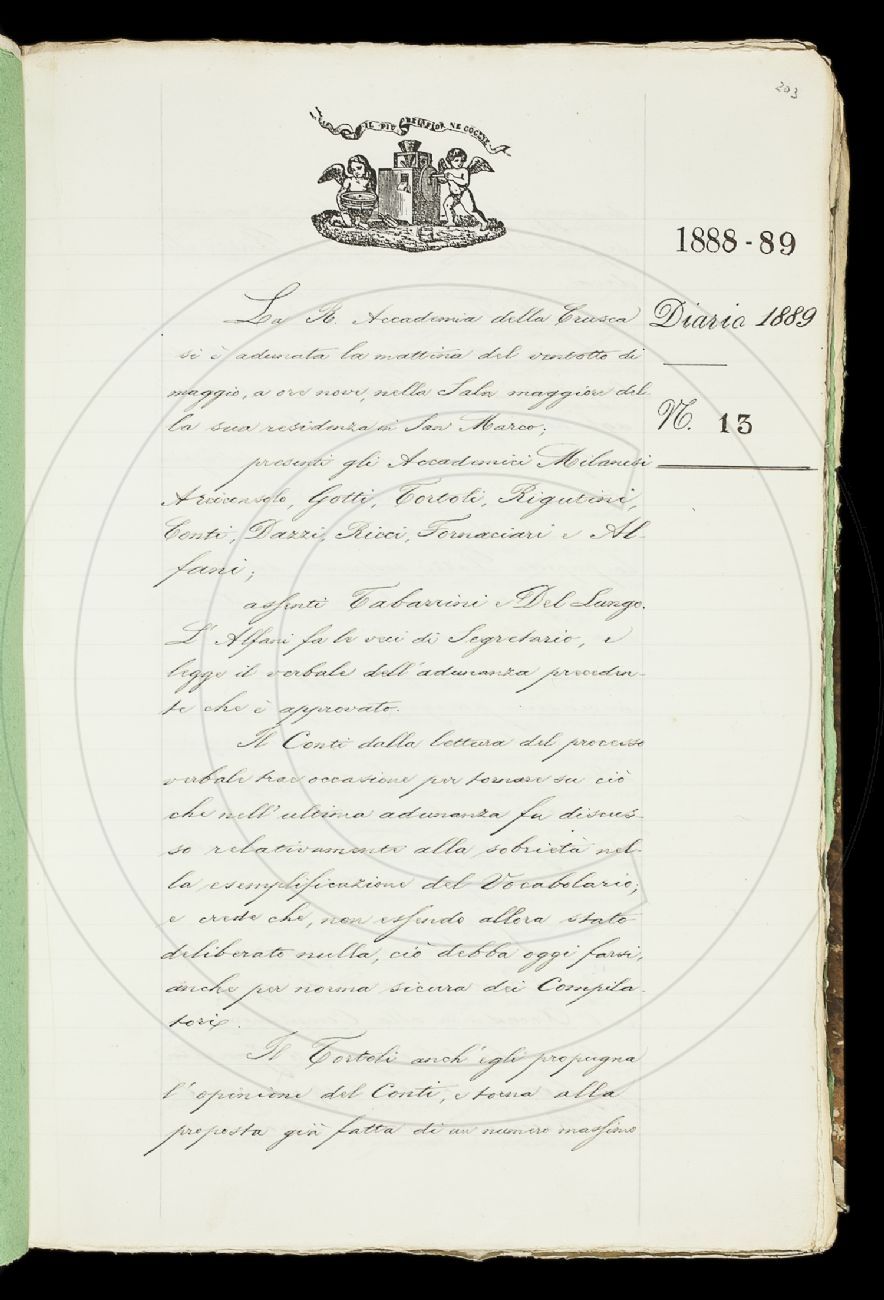 203
IL PIÙ BEL FIOR NE COGLIE
1888-89
Diario 1889
N. 13
La R. Accademia della Crusca
si è adunata la mattina del ventotto di
maggio, a ore nove, nella Sala maggiore del-
la sua residenza in San Marco;
presenti gli Accademici Milanesi
Arciconsolo, Gotti, Tortoli, Rigutini,
Conti, Dazzi, Ricci, Fornaciari e Al-
fani;
assenti Tabarrini e Del Lungo.
L'Alfani fa le veci di Segretario, e
legge il verbale dell'adunanza preceden-
te che è approvato.
Il Conti dalla lettura del processo
verbale trae occasione per tornare su ciò
che nell'ultima adunanza fu discus-
so relativamente alla sobrietà nel-
la esemplificazione del Vocabolario;
e crede che, non essendo allora stato
deliberato nulla, ciò debba oggi farsi,
anche per norma sicura dei Compila-
tori.
Il Tortoli anch'egli propugna
l'opinione del Conti, e torna alla
proposta già fatta di un numero massimo